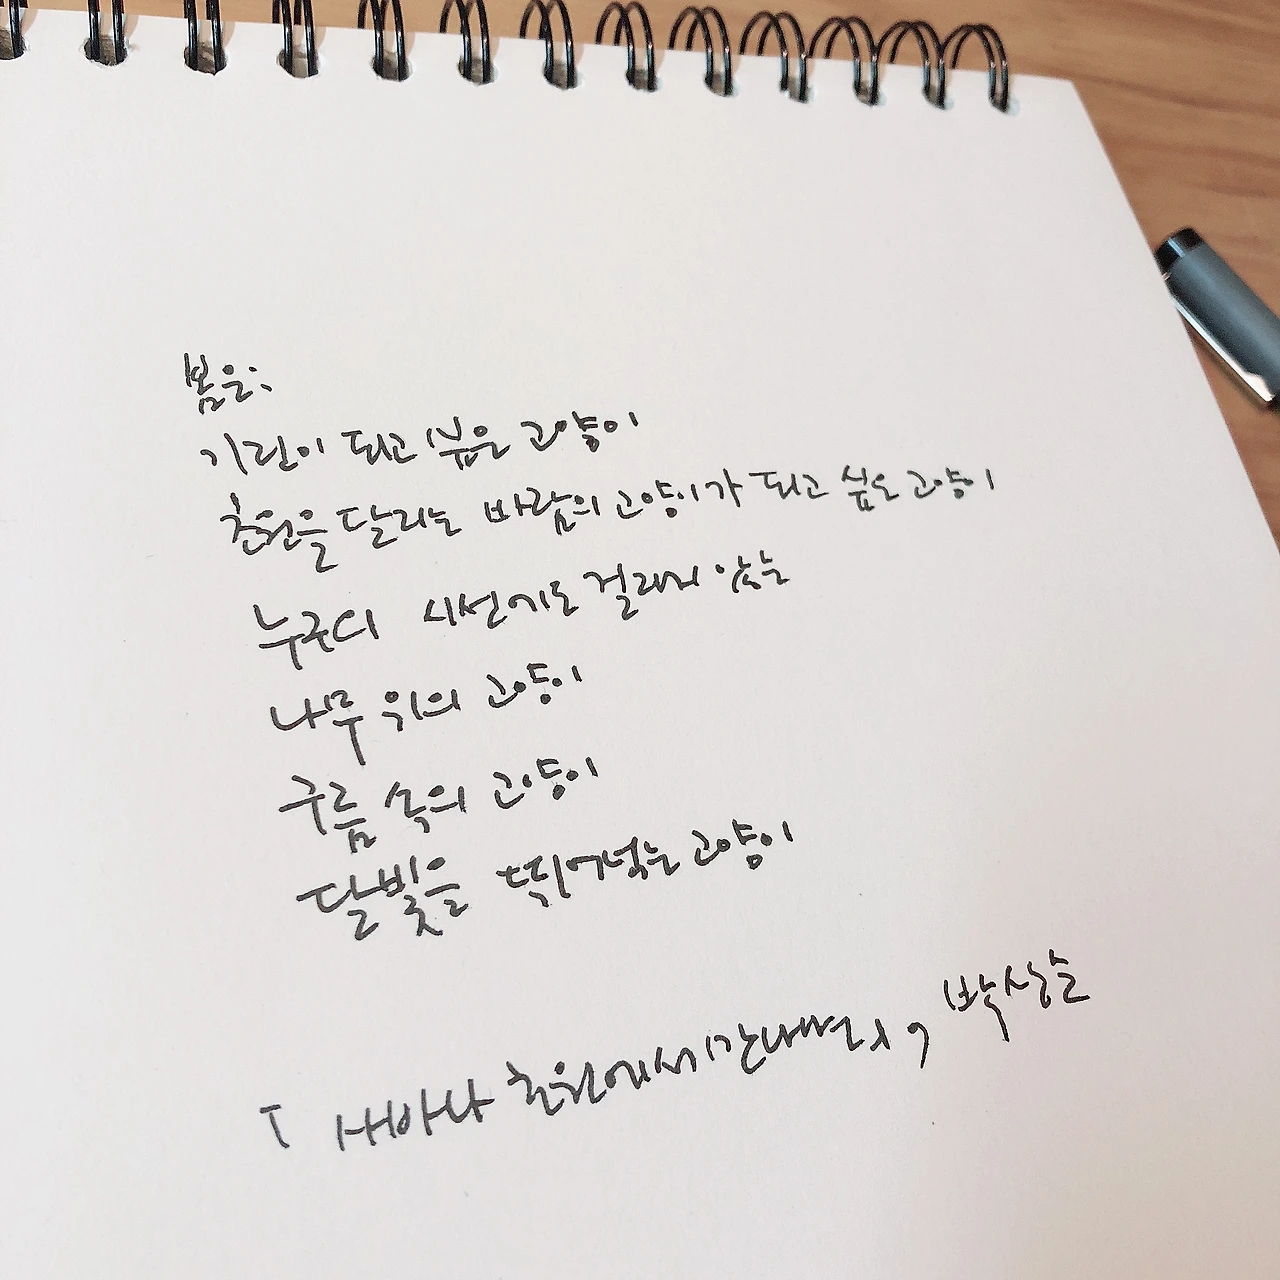 봄은:
기린이 되고 싶은 고양이
초원을 달리는 바람의 고양이가 되고 싶은 고양이
누구의 시선에도 걸리지 않는
나무 위의 고양이
구름 속의 고양이
달빛을 찍어먹는 고양이
T 사바나 초원에서 만나면지, 박상순